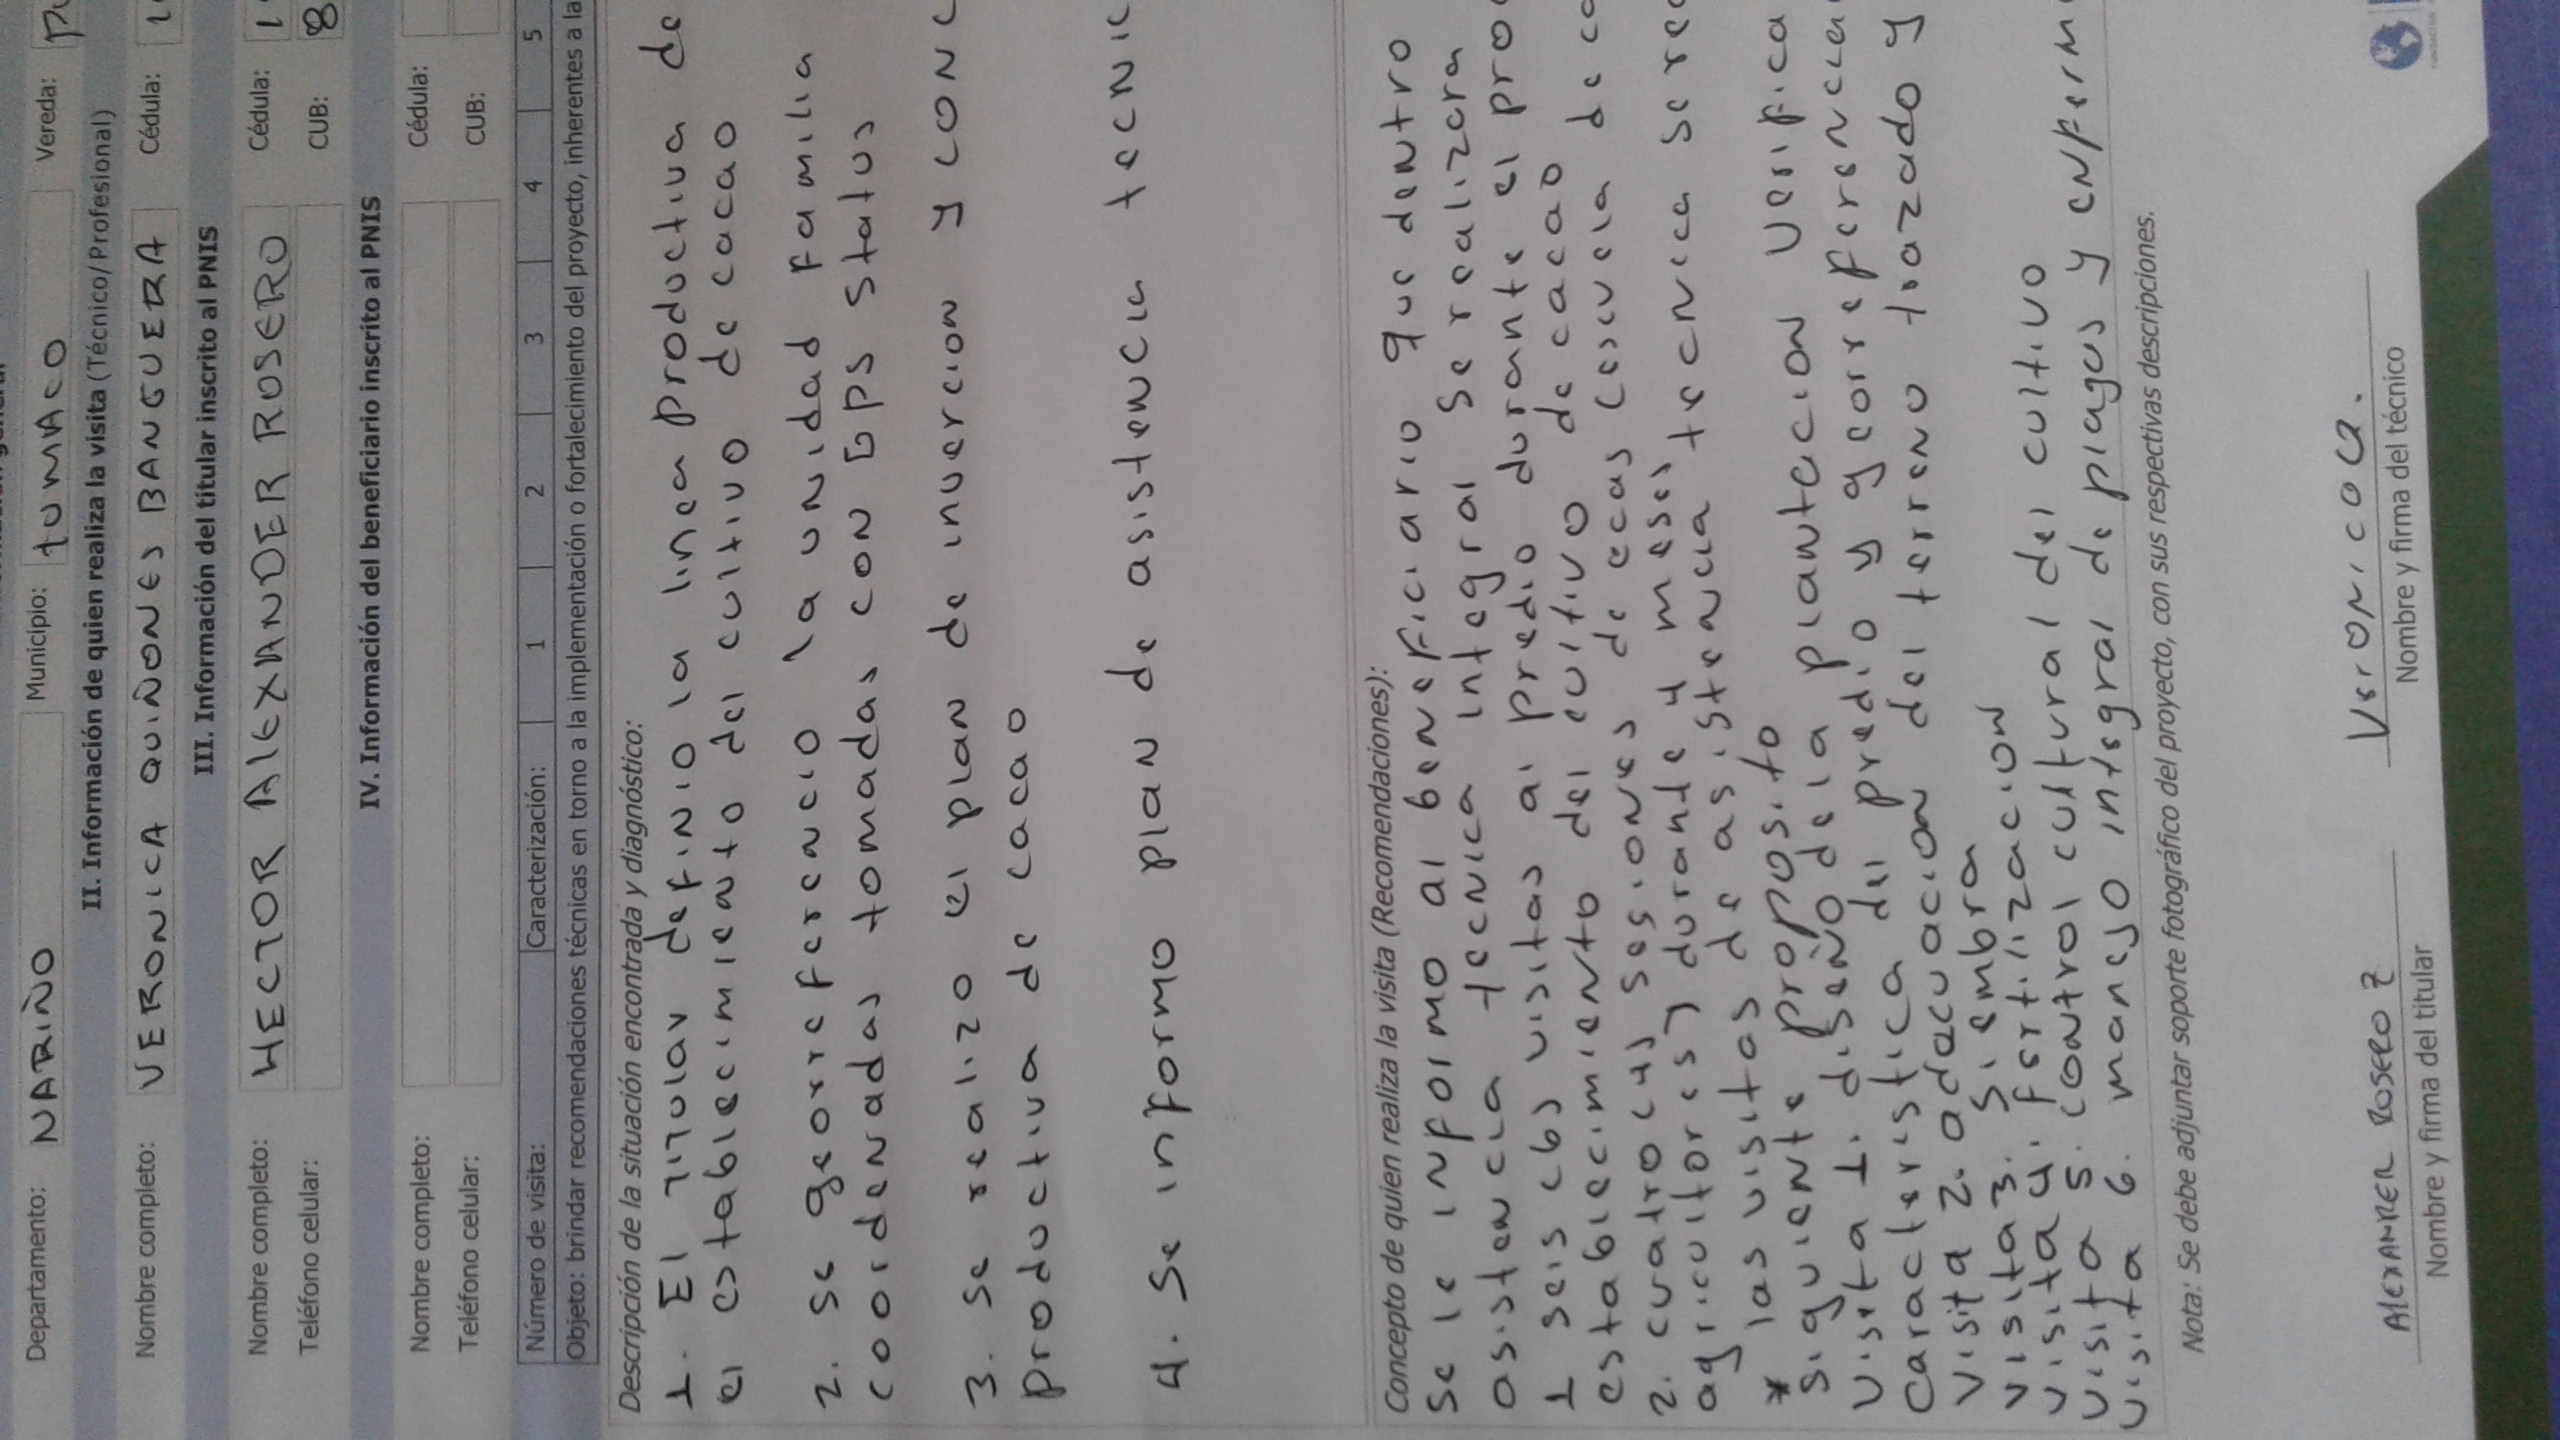 Departamento: NARIÑO Municipio: tUMACO Vereda:
II. Información de quien realiza la visita (Técnico/Profesional)
Nombre completo: VERONICA QUIÑONES BANGUERA Cédula:
III. Información del titular inscrito al PNIS
Nombre completo: HECTOR AlEXANDER ROSERO Cédula: 1
Teléfono celular: CUB: 8
IV. Información del beneficiario inscrito al PNIS
Nombre completo: Cédula:
Teléfono celular: CUB:
Número de visita: Caracterización: 1 2 3 4 5
Objeto: brindar recomendaciones técnicas en torno a la implementación o fortalecimiento del proyecto, inherentes a la
Descripción de la situación encontrada y diagnóstico:
1. El titular definio la linea productiva de
el establecimiento del cultivo de cacao
2. se georreferencio la unidad familia
coordenadas tomadas con GPS status
3. se realizo el plan de inuercion y conc
productiva de cacao
4. se informo plan de asistencia tecnic
Concepto de quien realiza la visita (Recomendaciones):
se le informo al beneficiario que dentro
asistencia tecnica integral se realizara
1 seis (6) visitas al predio durante el pro
establecimiento del cultivo de cacao
2. cuatro (4) sesiones de ecas (escuela de ca
agricultores) durante 4 meses
* las visitas de asistencia tecnica se rea
siguiente proposito
visita 1. diseño de la plantacion verifica
caracteristica del predio y georreferencia
visita 2. adecuacion del terreno trazado y
visita 3. siembra
visita 4. fertilizacion
visita 5. control cultural del cultivo
visita 6. manejo integral de plagas y enferm
Nota: Se debe adjuntar soporte fotográfico del proyecto, con sus respectivas descripciones.
AlexANDER ROSERO Z Veronica Q.
Nombre y firma del titular Nombre y firma del técnico